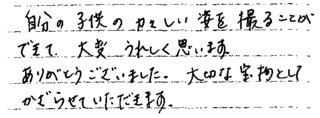 自分の子供のかわいい姿を撮ることが
できて、大変うれしく思います。
ありがとうございました。大切な宝物として
かざらせていただきます。